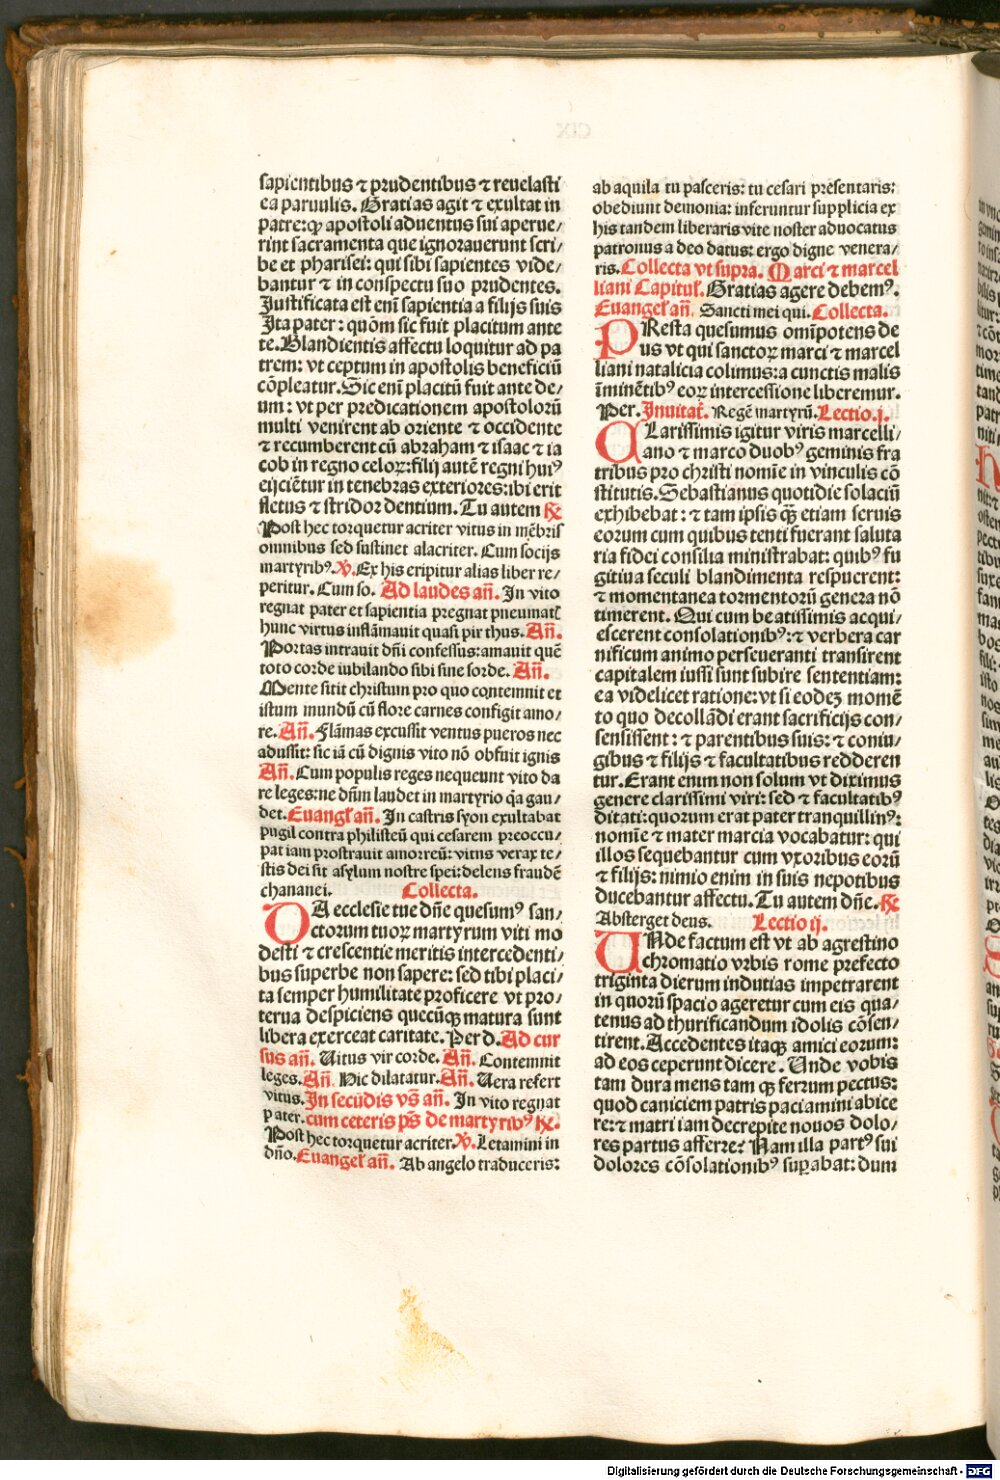 sapientibus ⁊ prudentibus ⁊ reuelasti
ea paruulis. Gratias agit ⁊ exultat in
patre: ꝙ apostoli aduentus sui aperue/
rint sacramenta que ignorauerunt scri/
be et pharisei: qui sibi sapientes vide/
bantur ⁊ in conspectu suo prudentes.
Justificata est eni᷑ sapientia a filijs suis
Ita pater: quōm sic fuit placitum ante
te. Blandientis affectu loquitur ad pa
trem: vt ceptum in apostolis beneficiū
cōpleatur. Sic eni᷑ placitū fuit ante de/
um: vt per predicationem apostolorū
multi venirent ab oriente ⁊ occidente
⁊ recumberent cū abraham ⁊ isaac ⁊ ia
cob in regno celoꝝ: filij autē regni huiꝰ
eijciētur in tenebras exteriores: ibi erit
fletus ⁊ stridor dentium. Tu autem ℟
Post hec torquetur acriter vitus in mēbris
omnibus sed sustinet alacriter. Cum socijs
martyribꝰ. ℣. Ex his eripitur alias liber re/
peritur. Cum so. Ad laudes an̄. In vito
regnat pater et sapientia pregnat pneumat
hunc virtus inflāmauit quasi pir thus. An̄.
Portas intrauit dn̄i confessus: amauit quē
toto corde iubilando sibi sine sorde. An̄.
Mente sitit christum pro quo contemnit et
istum mundū cū flore carnes configit amo/
re. An̄. Flāmas excussit ventus pueros nec
adussit: sic iā cū dignis vito nō obfuit ignis
An̄. Cum populis reges nequeunt vito da
re leges: ne dn̄m laudet in martyrio q̄a gau/
det. Euangł an̄. In castris syon exultabat
pugil contra philisteū qui cesarem preoccu/
pat iam prostrauit amorreū: vitus verax te/
stis dei sit asylum nostre spei: delens fraudē
chananei. Collecta.
DA ecclesie tue dn̄e quesumꝰ san/
ctorum tuoꝝ martyrum viti mo
desti ⁊ crescentie meritis intercedenti/
bus superbe non sapere: sed tibi placi/
ta semper humilitate proficere vt pro/
terua despiciens quecūqꝫ matura sunt
libera exerceat caritate. Per d. Ad cur
sus an̄. Uitus vir corde. An̄. Contemnit
leges. An̄. Hic dilatatur. An̄. Uera refert
vitus. In secūdis vs̄ an̄. In vito regnat
pater. cum ceteris ps̄ de martyribꝰ ℟.
Post hec torquetur acriter. ℣. Letamini in
dn̄o. Euangeł an̄. Ab angelo traduceris:
ab aquila tu pasceris: tu cesari presentaris:
obediunt demonia: inferuntur supplicia ex
his tandem liberaris vite noster aduocatus
patronus a deo datus: ergo digne venera/
ris. Collecta vt supra. Marci ⁊ marcel
liani Capituł. Gratias agere debemꝰ.
Euangeł an̄. Sancti mei qui. Collecta.
PResta quesumus omīpotens de
us vt qui sanctoꝝ marci ⁊ marcel
liani natalicia colimus: a cunctis malis
īminētibꝰ eoꝝ intercessione liberemur.
Per. Inuitat̄. Regē martyrū. Lectio. j.
CLarissimis igitur viris marcelli/
ano ⁊ marco duobꝰ geminis fra
tribus pro christi nomīe in vinculis cō
stitutis. Sebastianus quotidie solaciū
exhibebat: ⁊ tam ipsis qꝫ etiam seruis
eorum cum quibus tenti fuerant saluta
ria fidei consilia ministrabat: quibꝰ fu
gitiua seculi blandimenta respuerent:
⁊ momentanea tormentorū genera nō
timerent. Qui cum beatissimis acqui/
escerent consolationibꝰ: ⁊ verbera car
nificum animo perseueranti transirent
capitalem iussi sunt subire sententiam:
ea videlicet ratione: vt si eodeꝫ momē
to quo decollādi erant sacrificijs con/
sensissent: ⁊ parentibus suis: ⁊ coniu/
gibus ⁊ filijs ⁊ facultatibus redderen
tur. Erant enim non solum vt diximus
genere clarissimi viri: sed ⁊ facultatibꝰ
ditati: quorum erat pater tranquillinꝰ:
nomīe ⁊ mater marcia vocabatur: qui
illos sequebantur cum vxoribus eorū
⁊ filijs: nimio enim in suis nepotibus
ducebantur affectu. Tu autem dn̄e. ℟
Absterget deus. Lectio ij.
UNde factum est vt ab agrestino
chromatio vrbis rome prefecto
triginta dierum indutias impetrarent
in quorū spacio ageretur cum eis qua/
tenus ad thurificandum idolis cōsen/
tirent. Accedentes itaqꝫ amici eorum:
ad eos ceperunt dicere. Unde vobis
tam dura mens tam qꝫ ferrum pectus:
quod caniciem patris paciamini abice
re: ⁊ matri iam decrepite nouos dolo/
res partus afferre? Nam illa partꝰ sui
dolores cōsolationibꝰ superabat: dum
Digitalisierung gefördert durch die Deutsche Forschungsgemeinschaft - DFG